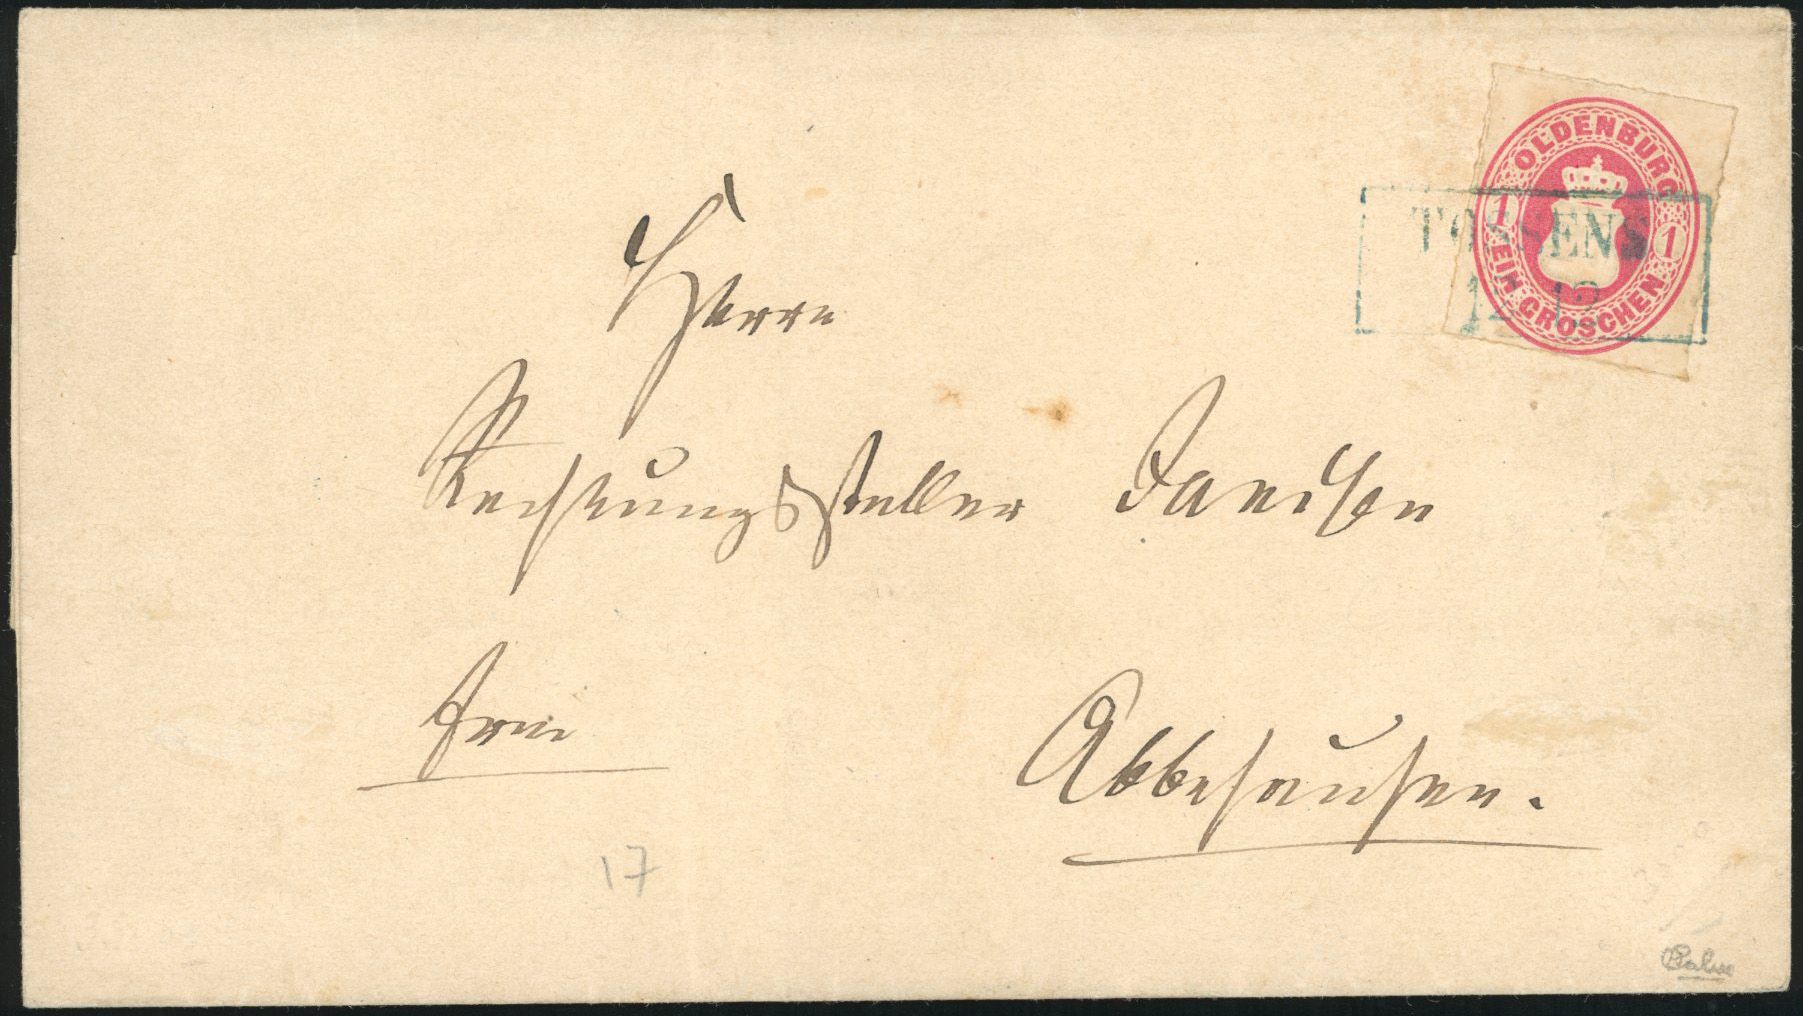 OLDENBURG
1 1
EIN GROSCHEN
TOSSENS
12 12
Herrn
Rechnungssteller Janssen
frei
Abbehausen.
17